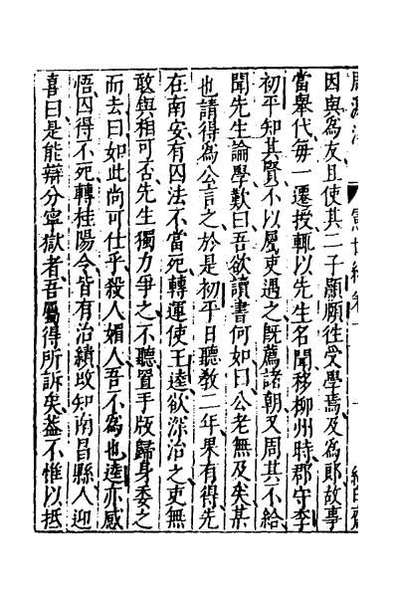 因與為友且使其二子顥頤往受學焉及為郎故事
當舉代每一遷授輒以先生名聞移柳州時郡守李
初平知其賢不以屬吏遇之既薦諸朝又周其不給
聞先生論學歎曰吾欲讀書何如曰公老無及矣某
也請得為公言之於是初平日聽教二年果有得先
在南安有囚法不當死轉運使王逵欲深治之吏無
敢與相可否先生獨力爭之不聽置手版歸身委之
而去曰如此尚可仕乎殺人媚人吾不為也逵亦感
悟囚得不死轉桂陽令皆有治績改知南昌縣人迎
喜曰是能辯分寧獄者吾屬得所訴矣葢不惟以抵